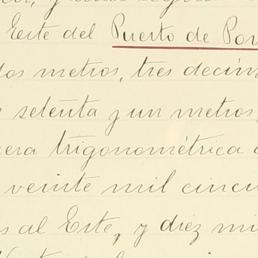 Este del Puerto de Por
dos metros, tres decím
setenta y un metros,
era trigonométrica
veinte mil cincu
s al Este, y diez mi